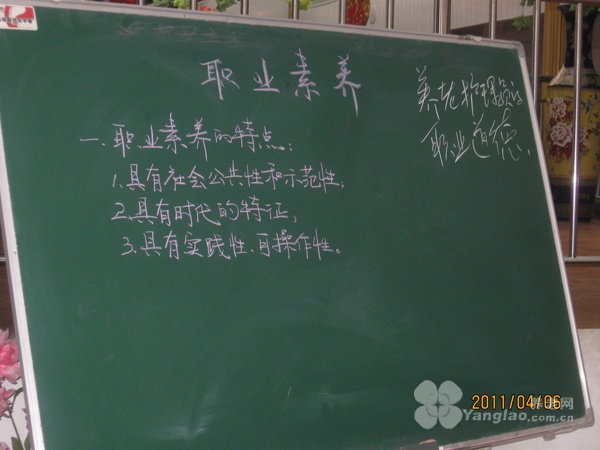 职业素养
一、职业素养的特点：
1.具有社会公共性和示范性；
2.具有时代的特征；
3.具有实践性、可操作性。
养老护理员的
职业道德、
2011/04/06
养老网
Yanglao.com.cn